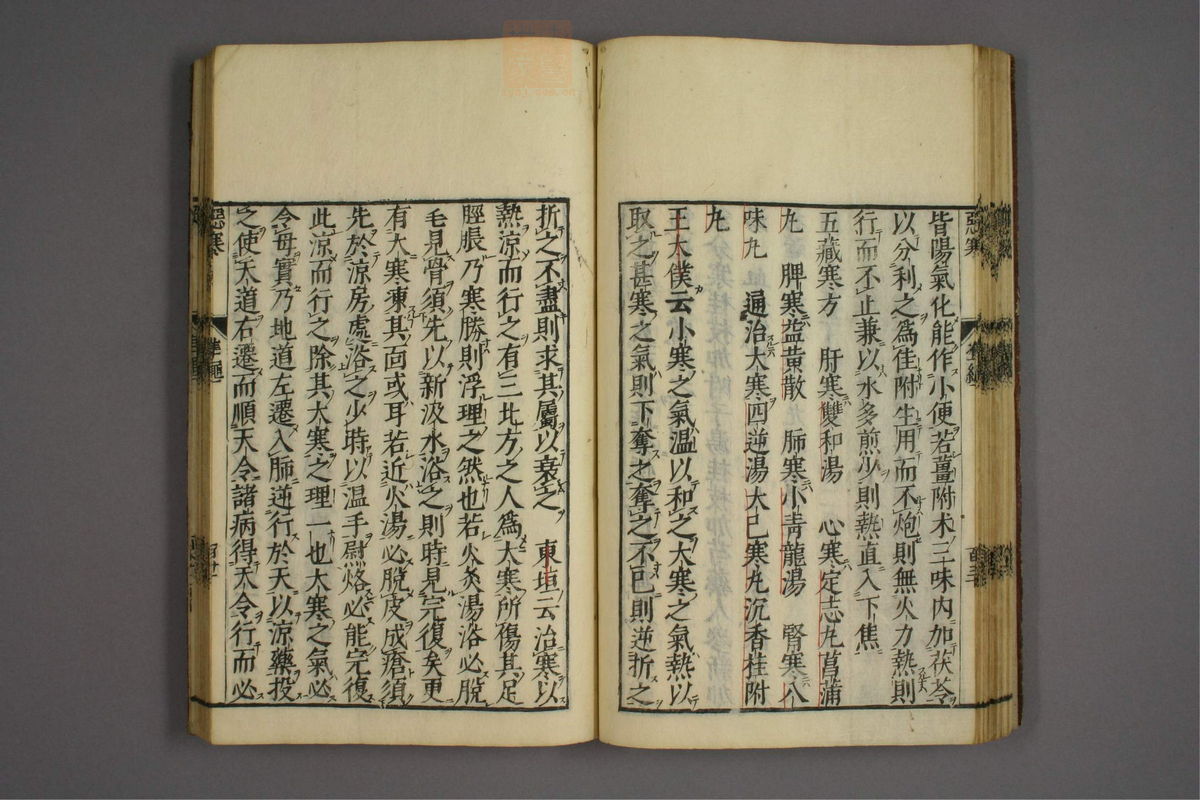 皆陽氣化能作小便若薑附朮三味内加茯苓
以分利之爲佳附生用而不炮則無火力熱則
行而不止兼以水多煎少則熱直入下焦
五藏寒方　肝寒雙和湯　心寒定志丸菖蒲
丸　脾寒益黄散　肺寒小青龍湯　腎寒八
味丸　遍治大寒四逆湯大已寒丸沉香桂附
丸
王太僕云小寒之氣温以和之大寒之氣熱以
取之甚寒之氣則下奪之奪之不已則逆折之
折之不盡則求其屬以衰之　東垣云治寒以
熱凉而行之有三北方之人爲大寒所傷其足
脛脹乃寒勝則浮理之然也若火灸湯浴必脱
毛見骨須先以新汲水浴之則時見完復矣更
有大寒凍其面或耳若近火湯必脱皮成瘡須
先於凉房處浴之少時以温手熨烙必能完復
此凉而行之除其大寒之理一也大寒之氣必
令母實乃地道左遷入肺逆行於天以凉藥投
之使天道右遷而順天令諸病得天令行而必
惡寒
惡寒